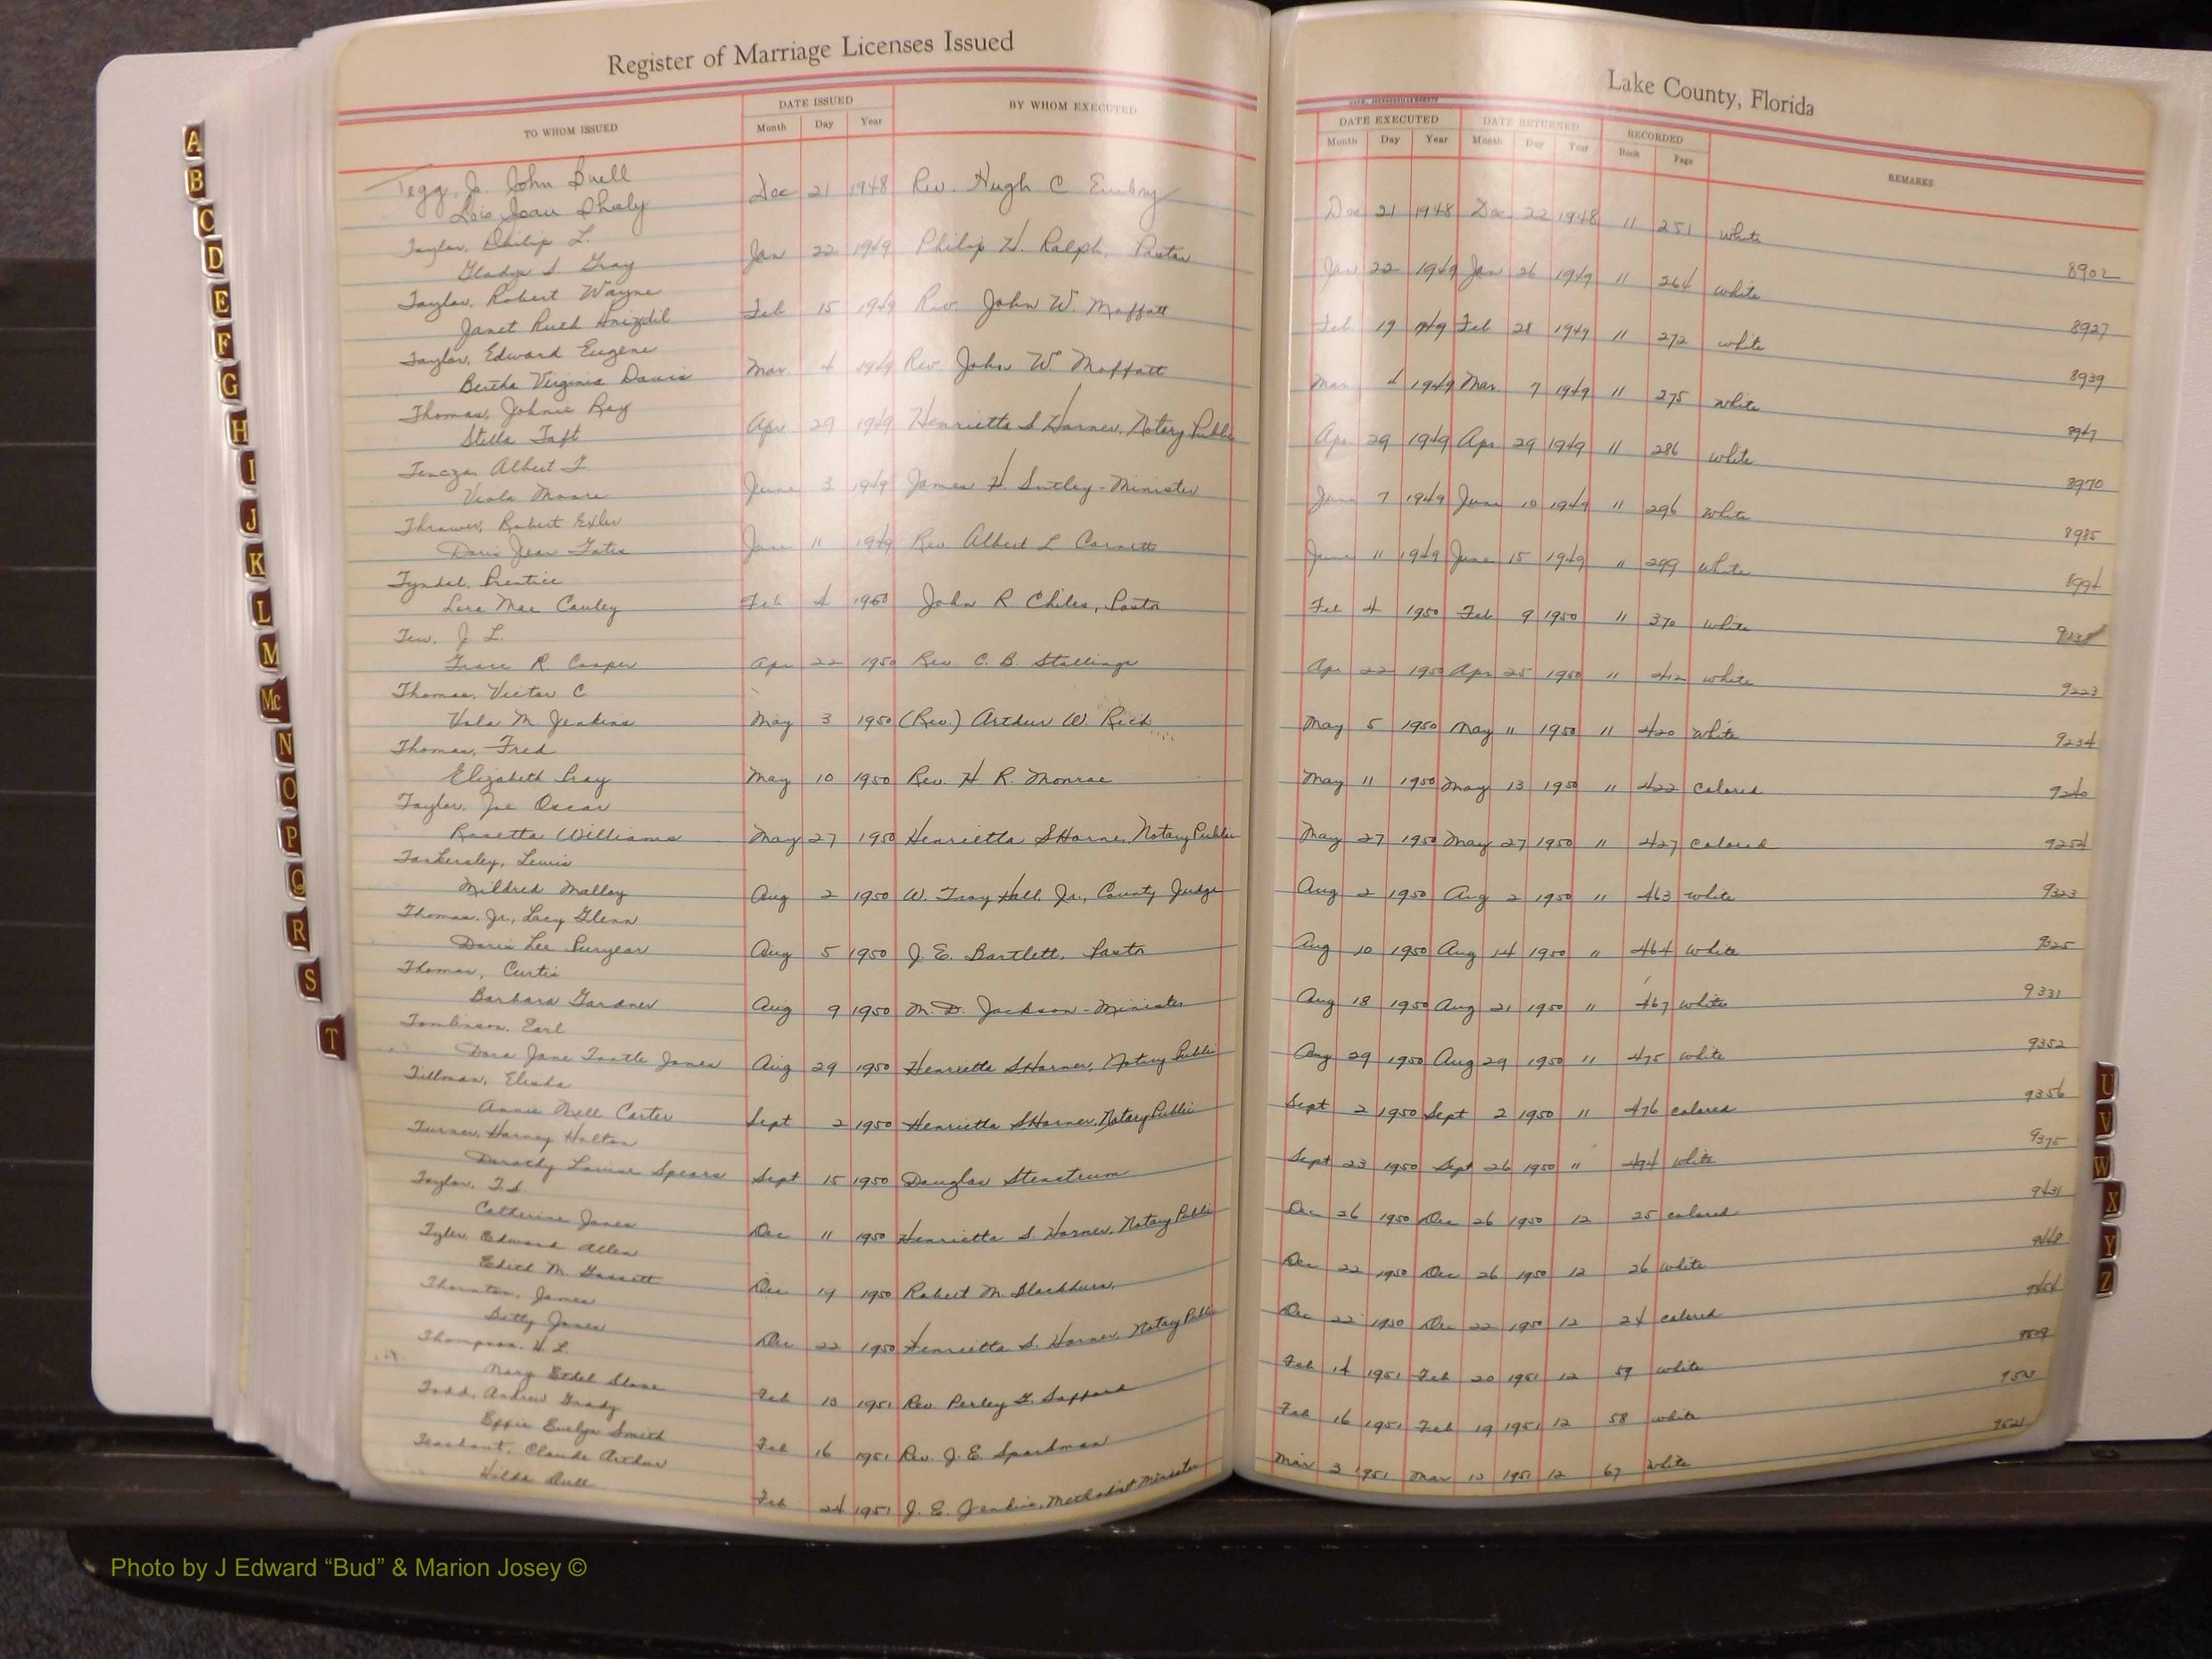 Register of Marriage Licenses Issued
Lake County, Florida
TO WHOM ISSUED
DATE ISSUED
Month Day Year
BY WHOM EXECUTED
DATE EXECUTED
Month Day Year
DATE RETURNED
Month Day Year
RECORDED
Book Page
REMARKS
Tegg, Jr. John Buell
Lois Jean
Dec 21 1948 Rev. Hugh C Embry Dec 21 1948 Dec 22 1948 11 251 white 8902
Taylor, Philip L.
Gladys S Gray
Jan 22 1949 Philip H. Ralph, Pastor Jan 22 1949 Jan 26 1949 11 264 white 8927
Taylor, Robert Wayne
Janet Ruth Hnizdil
Feb 15 1949 Rev. John W. Moffatt Feb 19 1949 Feb 21 1949 11 272 white 8939
Taylor, Edward Eugene
Bertha Virginia Davis
Mar 4 1949 Rev. John W. Moffatt Mar 4 1949 Mar 7 1949 11 275 white 8947
Thomas, Johnie Ray
Stella Taft
Apr 29 1949 Henrietta S Harner, Notary Public Apr 29 1949 Apr 29 1949 11 286 white 8970
Tencza, Albert T.
Viola Moore
June 3 1949 James H. Sutley-Minister June 7 1949 June 10 1949 11 296 white 8985
Thrower, Robert Exler
Doris Jean
June 11 1949 Rev Albert L June 11 1949 June 15 1949 11 299 white 8994
Tyndal, Prentice
Lora Mae Cauley
Feb 4 1950 John R Chiles, Pastor Feb 4 1950 Feb 9 1950 11 370 white
Tew, J. L.
Grace R. Cooper
Apr 22 1950 Rev. C. B. Stallings Apr 22 1950 Apr 25 1950 11 412 white 9223
Thomas, Victor C
M. Jenkins
May 3 1950 (Rev.) Arthur W. Rich May 5 1950 May 11 1950 11 420 white 9234
Thomas, Fred
Elizabeth
May 10 1950 Rev. H R. Monroe May 11 1950 May 13 1950 11 422 colored 9240
Taylor, Joe Oscar
Rosetta Williams
May 27 1950 Henrietta S Harner, Notary Public May 27 1950 May 27 1950 11 427 colored 9254
Tankersley, Lewis
Mildred Malloy
Aug 2 1950 W. Troy Hall, Jr., County Judge Aug 2 1950 Aug 2 1950 11 463 white 9323
Thomas, Jr., Lacy Glenn
Doris Lee Puryear
Aug 5 1950 J. E. Bartlett, Pastor Aug 10 1950 Aug 14 1950 11 464 white 9325
Thomas, Curtis
Barbara Gardner
Aug 9 1950 M. D. Jackson - Minister Aug 18 1950 Aug 21 1950 11 467 white 9331
Tomlinson, Earl
Dora Jane Tootle Jones
Aug 29 1950 Henrietta S Harner, Notary Public Aug 29 1950 Aug 29 1950 11 475 white 9352
Tillman, Elisha
Annie Nell Carter
Sept 2 1950 Henrietta S Harner, Notary Public Sept 2 1950 Sept 2 1950 11 476 colored 9356
Turner, Harvey Halton
Dorothy Louise Spears
Sept 15 1950 Douglas Stenstrum Sept 23 1950 Sept 26 1950 11 494 white 9375
Taylor, T.S.
Catherine Jones
Dec 11 1950 Henrietta S. Harner, Notary Public Dec 26 1950 Dec 26 1950 12 25 colored 9431
Tyler, Edward Allen
Edith M.
Dec 14 1950 Robert M. Blackburn Dec 22 1950 Dec 26 1950 12 26 white
Thornton, James
Betty Jones
Dec 22 1950 Henrietta S. Harner, Notary Public Dec 22 1950 Dec 22 1950 12 24 colored
Thompson, H. L.
Mary Ethel Stone
Feb 13 1951 Rev Perley G. Safford Feb 14 1951 Feb 20 1951 12 59 white
Todd, Andrew Grady
Effie Evelyn Smith
Feb 16 1951 Rev. J. E. Sparkman Feb 16 1951 Feb 19 1951 12 58 white
Claude Arthur
Hilda
Feb 24 1951 J. E. Jenkins, Methodist Minister Mar 3 1951 Mar 10 1951 12 67 white
A
B
C
D
E
F
G
H
I
J
K
L
M
Mc
N
O
P
Q
R
S
T
U
V
W
X
Y
Z
Photo by J Edward “Bud” & Marion Josey ©